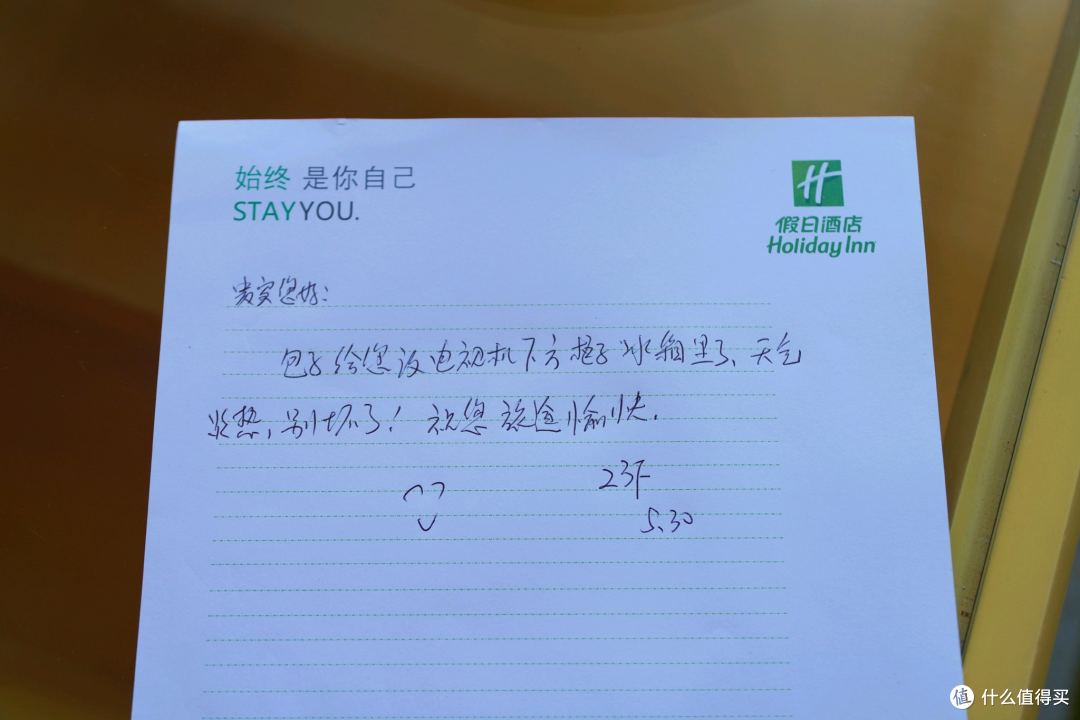 始终 是你自己
STAY YOU.
假日酒店
Holiday Inn
贵宾您好：
包子给您放电视机下方柜子冰箱里了、天气
炎热，别坏了！祝您旅途愉快.
23F
5.30
值 什么值得买